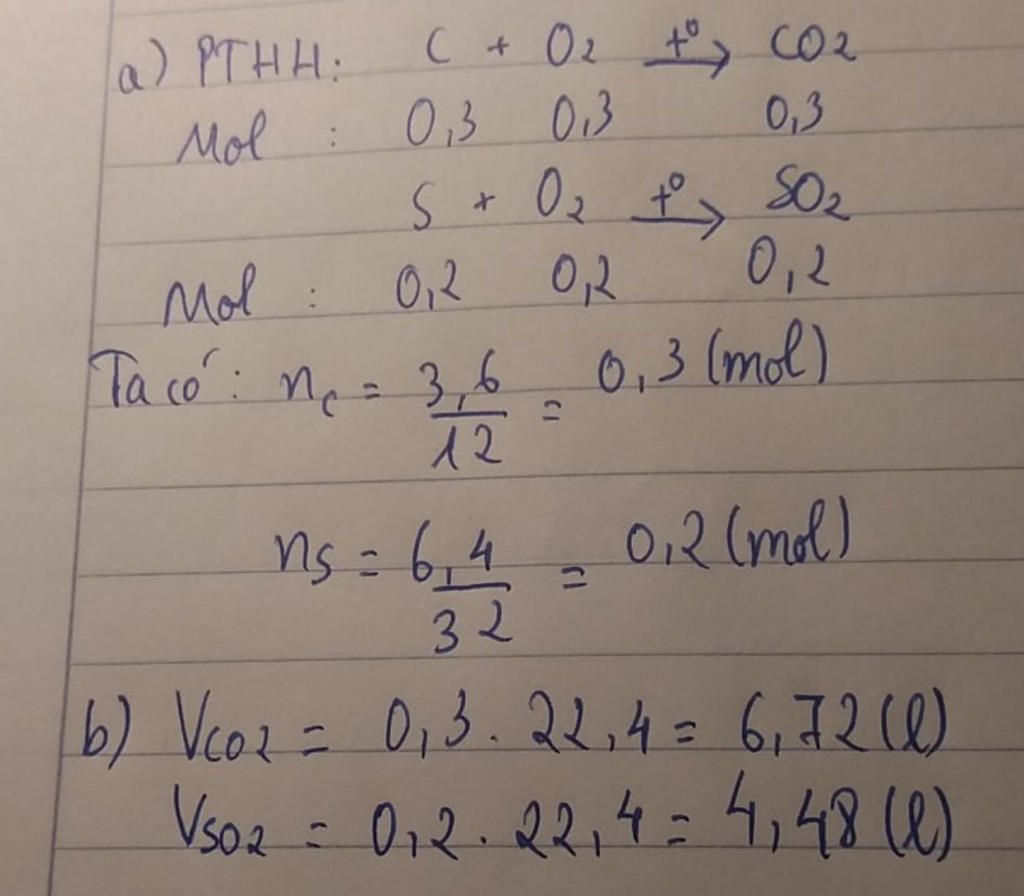 a) PTHH: C + O2 t°→ CO2
Mol : 0,3 0,3 0,3
S + O2 t°→ SO2
Mol : 0,2 0,2 0,2
Ta có: nc = 3,6/12 = 0,3 (mol)
ns = 6,4/32 = 0,2 (mol)
b) VCO2 = 0,3 . 22,4 = 6,72 (l)
VSO2 = 0,2 . 22,4 = 4,48 (l)